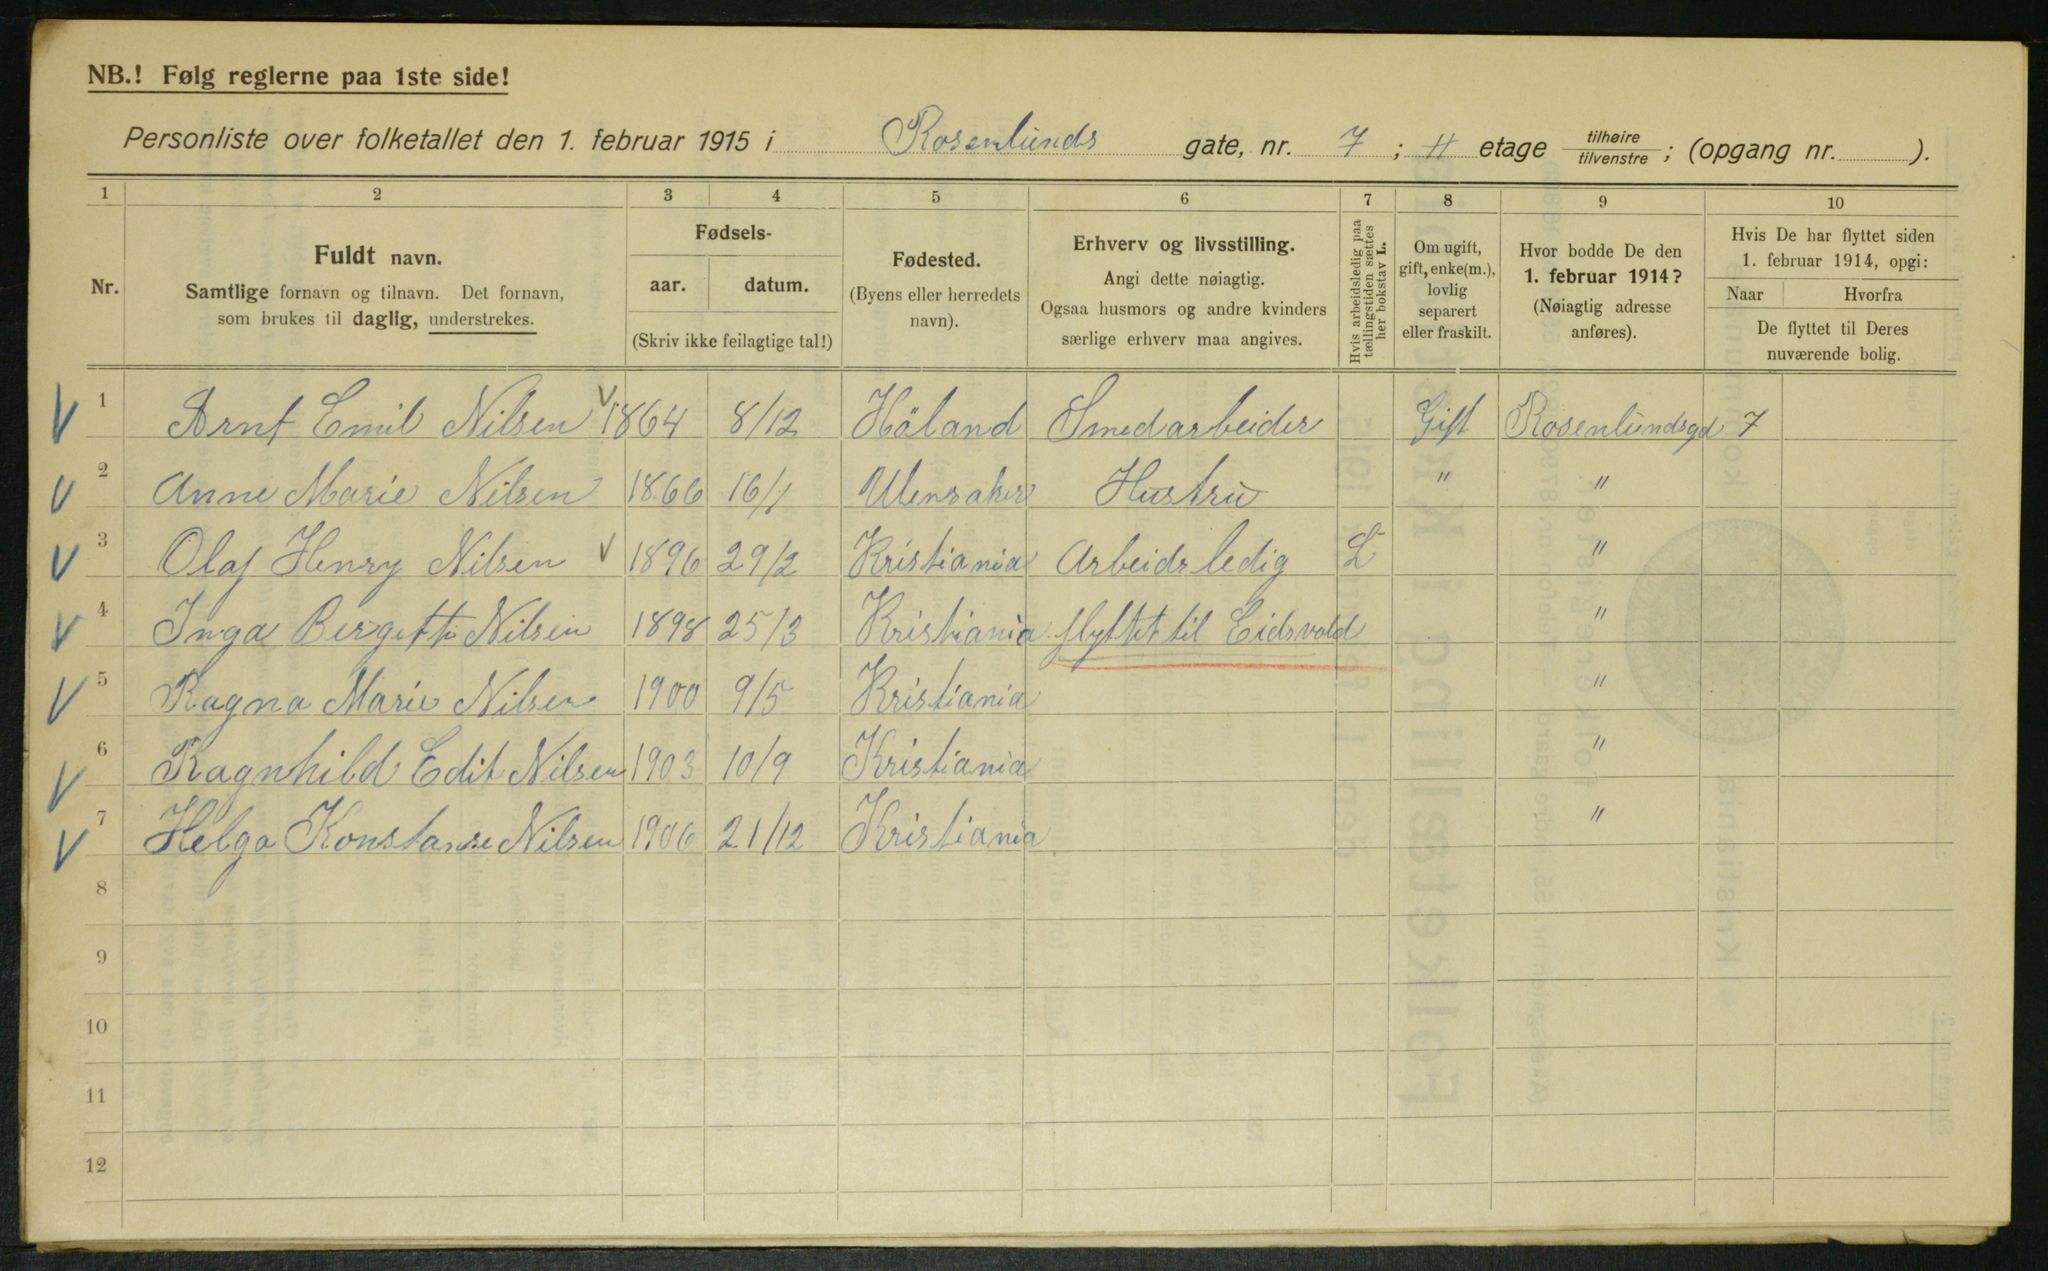 NB.! Følg reglerne paa 1ste side!
Personliste over folketallet den 1. februar 1915 i Rosenlunds gate, nr. 7; II etage tilhøire tilvenstre; (opgang nr. ).
1 2 3 4 5 6 7 8 9 10
Nr.
Fuldt navn.
Samtlige fornavn og tilnavn. Det fornavn,
som brukes til daglig, understrekes.
Fødsels-
aar. datum.
(Skriv ikke feilagtige tal!)
Fødested.
(Byens eller herredets
navn).
Erhverv og livsstilling.
Angi dette nøiagtig.
Ogsaa husmors og andre kvinders
særlige erhverv maa angives.
Hvis arbeidsledig paa
tællingstiden sættes
her bokstav L.
Om ugift,
gift, enke(m.),
lovlig
separert
eller fraskilt.
Hvor bodde De den
1. februar 1914?
(Nøiagtig adresse
anføres).
Hvis De har flyttet siden
1. februar 1914, opgi:
Naar Hvorfra
De flyttet til Deres
nuværende bolig.
1 Arnt Emil Nilsen 1864 8/12 Høland Smedarbeider Gift Rosenlundsgd 7
2 Anne Marie Nilsen 1866 16/1 Ulensaker Hustru " "
3 Olaf Henry Nilsen 1896 29/2 Kristiania Arbeidsledig L "
4 Inga Bergitte Nilsen 1898 25/3 Kristiania flyttet til Eidsvold "
5 Ragna Marie Nilsen 1900 9/5 Kristiania "
6 Ragnhild Edit Nilsen 1903 10/9 Kristiania "
7 Helga Konstanse Nilsen 1906 21/12 Kristiania "
8
9
10
11
12